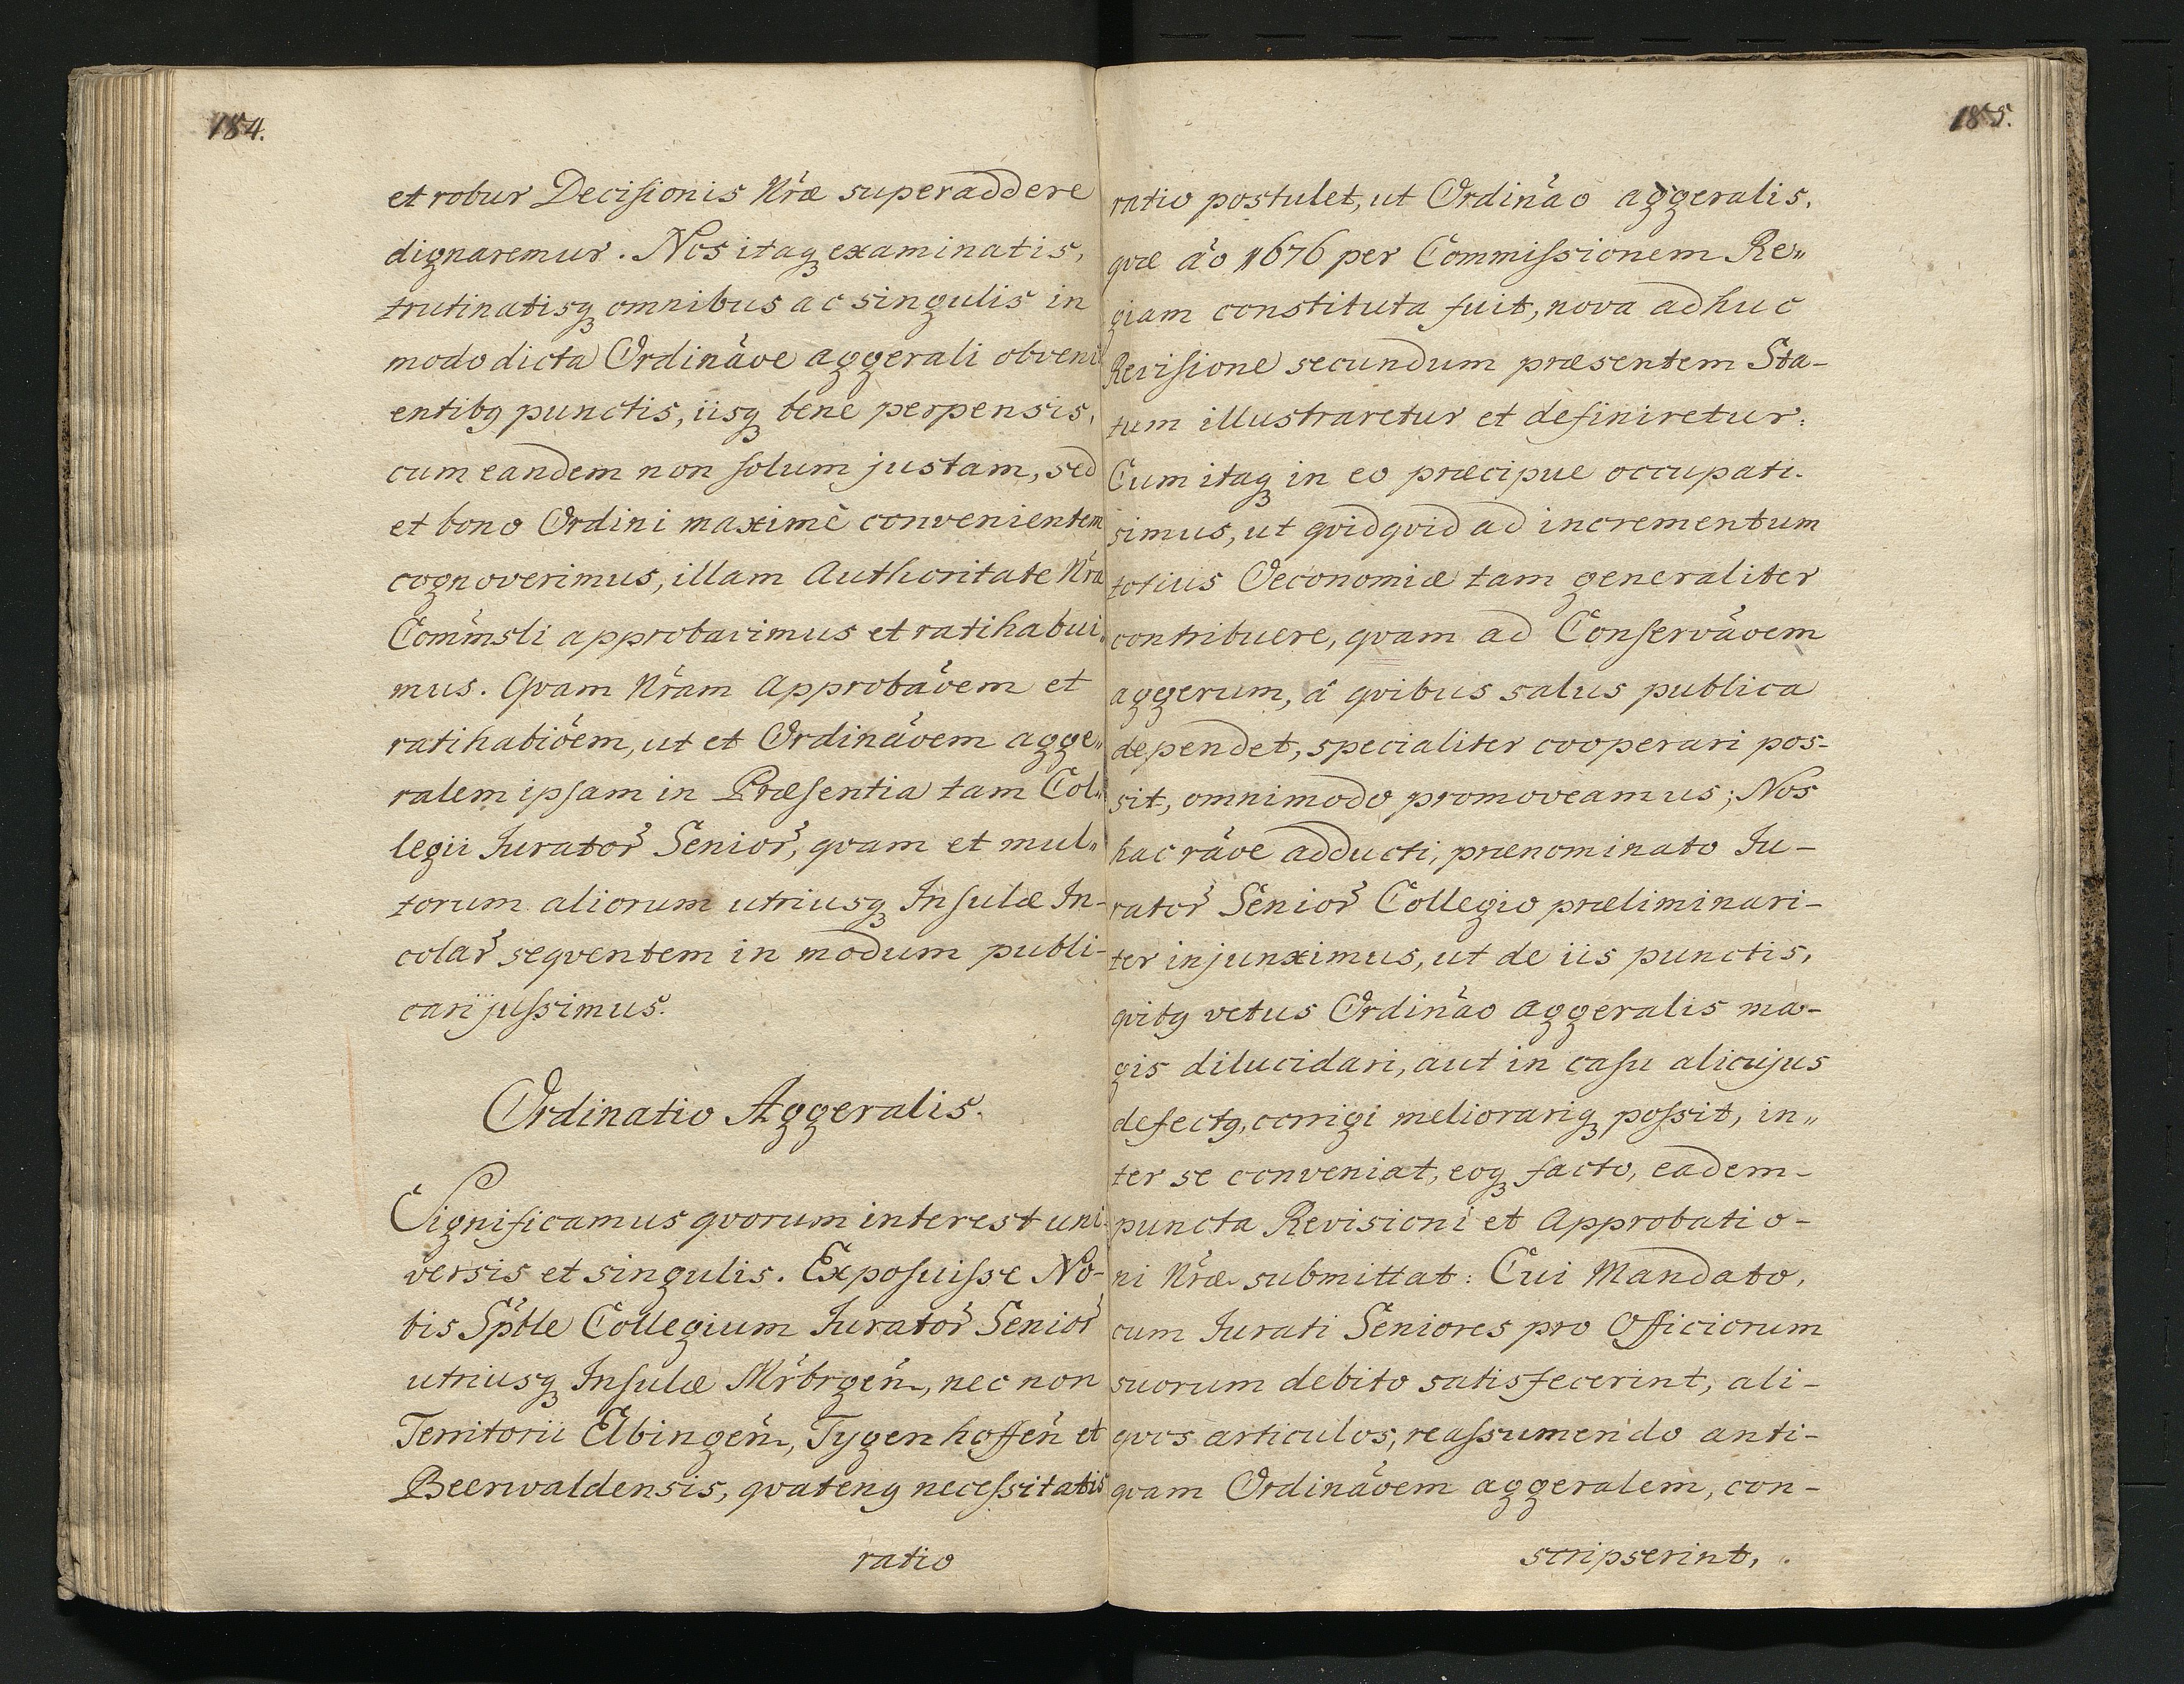 184.
et robur Decisionis Nr̃æ superaddere
dignaremur. Nos itaqꝫ examinatis,
trutinatisqꝫ omnibus ac singulis in
modo dicta Ordinãoe aggerali obveni
entibꝯ punctis, iisqꝫ bene perpensis,
cum eandem non solum justam, sed
et bono Ordini maximè convenientem
cognoverimus, illam Authoritate Nr̃a
Com̃msli approbavimus et ratihabui„
mus. Qvam Nr̃am Approbãoem et
ratihabiõem, ut et Ordinãoem agge„
ralem ipsam in Præsentia tam Col„
legii Jurator̃ Senior̃, qvam et mul„
torum aliorum utriusqꝫ Insulæ In-
colar̃ seqventem in modum publi-
cari jussimus.
Ordinatio Aggeralis.
Significamus qvorum interest uni
versis et singulis. Exposuisse No-
bis Sp̃tle Collegium Jurator̃ Senior̃
utriusqꝫ Insulæ Mr̃brgeñ, nec non
Territorii Elbingeñ, Tygenhoffeñ et
Beerwaldensis, qvatenꝯ necessitatis
ratio
185.
ratio postulet, ut Ordinão aggeralis,
qvæ aõ 1676 per Commissionem Re„
giam constituta fuit, nova adhuc
Revisione secundum præsentem Sta-
tum illustraretur et definiretur:
Cum itaqꝫ in eo præcipue occupati
simus, ut qvidqvid ad incrementum
totius Oeconomiæ tam generaliter
contribuere, qvam ad Conservãoem
aggerum, â qvibus salus publica
dependet, specialiter cooperari pos-
sit, omnimodo promoveamus; Nos
hac rãoe adducti, prænominato Ju-
rator̃ Senior̃ Collegio præliminari-
ter injunximus, ut de iis punctis,
qvibꝯ vetus Ordinão aggeralis ma-
gis dilucidari, aut in casu alicujus
defectꝯ, corrigi meliorariqꝫ possit, in„
ter se conveniat, eoqꝫ facto, eadem-
puncta Revisioni et Approbatio-
ni Nr̃æ submittat: Cui Mandato,
cum Jurati Seniores pro Officiorum
suorum debito satisfecerint, ali-
qvos articulos, reassumendo anti-
qvam Ordinãoem aggeralem, con-
scripserint,